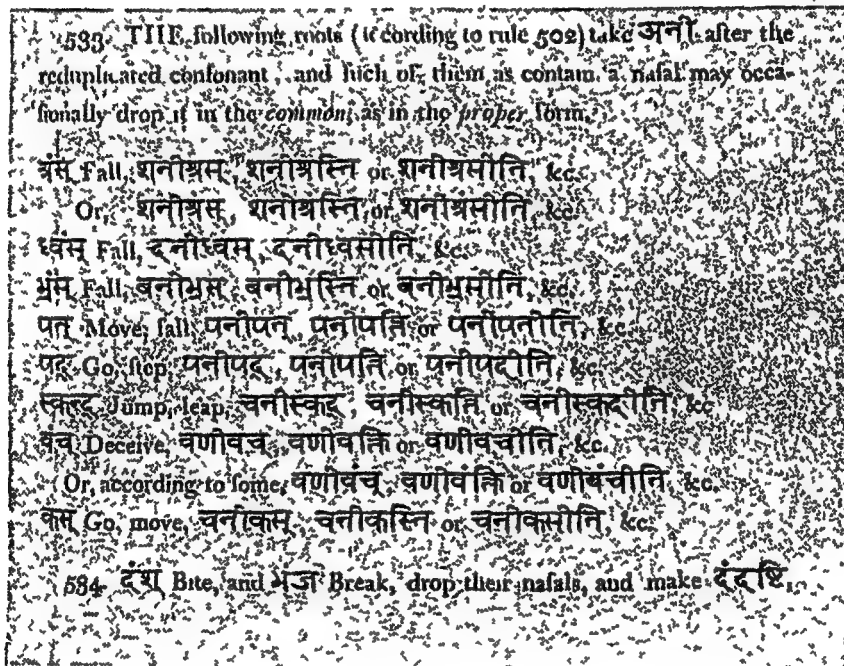 533. THE following roots (according to rule 502) take अनी after the
reduplicated consonant, and such of them as contain a nasal may occa-
sionally drop it in the common, as in the proper form.
श्रंस् Fall, शनीश्रस्, शनीश्रस्ति or शनीश्रसीति, &c.
Or, शनीश्रस्, शनीश्रस्ति, or शनीश्रसीति, &c.
ध्वंस् Fall, दनीध्वस्, दनीध्वसीति, &c.
भ्रंस् Fall, बनीभ्रस्, बनीभ्रस्ति or बनीभ्रसीति, &c.
पत् Move, fall, पनीपत्, पनीपत्ति or पनीपतीति, &c.
पद् Go, step, पनीपद्, पनीपत्ति or पनीपदीति, &c.
स्कन्द् Jump, leap, चनीस्कद्, चनीस्कत्ति or चनीस्कदीति, &c.
वंच् Deceive, वणीवच्, वणीवक्ति or वणीवचीति, &c.
Or, according to some, वणीवंच्, वणीवंक्ति or वणीवंचीति, &c.
कस् Go, move, चनीकस्, चनीकस्ति or चनीकसीति, &c.
534. दंश् Bite, and भंज Break, drop their nasals, and make दंदष्टि,